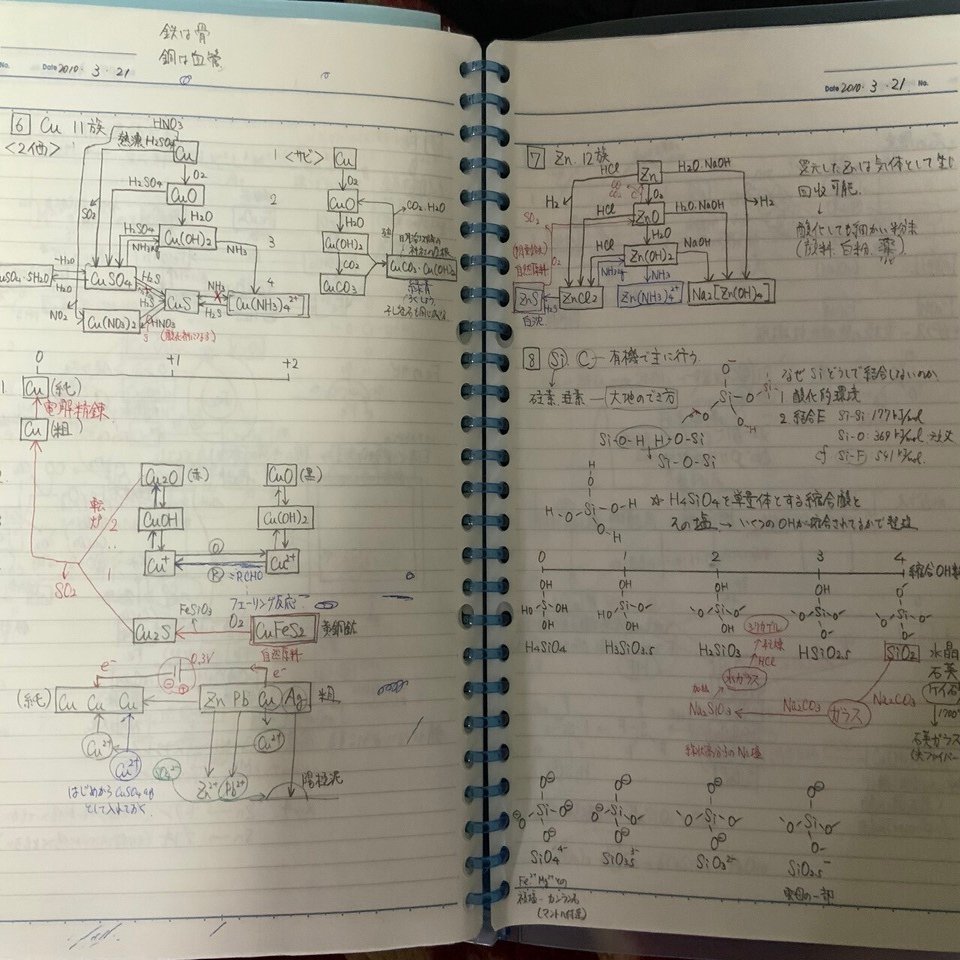 鉄は骨
銅は血管
No.
Date 2010・3・21
6 Cu 11族
<2価>
HNO3
熱濃H2SO4
Cu
O2
H2SO4
CuO
SO2
H2O
H2SO4
Cu(OH)2
NH3
CuSO4・5H2O
-H2O
H2O
CuSO4
H2S
CuS
NH3
H2S
Cu(NH3)42+
NO2
Cu(NO3)2
HNO3
1
2
3
4
<サビ>
Cu
O2
CuO
H2O
Cu(OH)2
CO2
CuCO3
CO2・H2O
CuCO3・Cu(OH)2
緑青
0
+1
+2
1.
Cu (純)
電解精錬
Cu (粗)
転炉
2
1
SO2
Cu2O (赤)
CuOH
Cu+
CuO (黒)
Cu(OH)2
Cu2+
O
R =RCHO
フェーリング反応
FeSiO3
O2
Cu2S
CuFeS2 黄銅鉱
自然原料
0.3V
e-
e-
(純) Cu Cu Cu
Zn Pb Cu Ag 粗
Cu2+
Cu2+
Cu2+
Zn2+ Pb2+
陽極泥
はじめからCuSO4 aq
として入れておく
Date 2010・3・21 No.
7 Zn 12族
HCl
Zn
H2O.NaOH
H2
O2
H2
HCl
ZnO
H2O.NaOH
SO2
H2O
HCl
Zn(OH)2
NaOH
自然原料
O2
NH3
ZnS
H2S
ZnCl2
Zn(NH3)42+
Na2[Zn(OH)4]
還元したZnは気体として生じ
回収可能.
酸化しても細かい粉末
(顔料.白粉.薬)
8 Si C - 有機で主に行う.
硅素.珪素 - 大地のでき方
なぜSiどうしで結合しないのか
1 酸化的環境
2 結合E Si-Si 177kJ/mol
Si-O 369kJ/mol
Si-F 541kJ/mol
Si-O-H H-O-Si
Si-O-Si
☆ H4SiO4を単量体とする縮合酸と
その塩 → いくつのOHが縮合されてるかで
0
1
2
3
4
縮合OH数
H4SiO4
H3SiO2.5
H2SiO3
HSiO2.5
SiO2
シリカゲル
乾燥
HCl
水ガラス
加熱
Na2SiO3
Na2CO3
ガラス
Na2CO3
水晶
石英
ケイ石
石英ガラス
(光ファイバー
SiO44-
SiO3.53-
SiO32-
SiO2.5-
Fe2+ Mg2+の
カンラン石